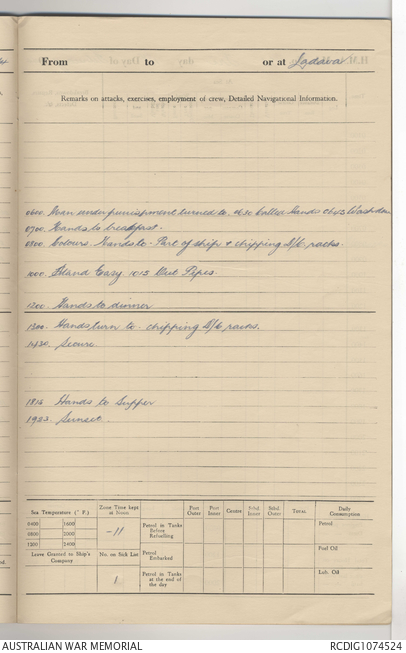 From to or at Ladava
Remarks on attacks, exercises, employment of crew, Detailed Navigational Information.
0600. Man under punishment turned to. 0630 Called Hands 0645 Wash down
0700. Hands to breakfast.
0800 Colours. Hands to - Part of ship & chipping D/C racks.
1000. Stand Easy. 1015 Out Pipes
1200. Hands to dinner
1300. Hands turn to - chipping D/C racks.
1430. Secure.
1815 Hands to Supper
1923. Sunset.
Sea Temperature (° F.) Zone Time kept at Noon Port Outer Port Inner Centre Stbd. Inner Stbd. Outer TOTAL Daily Consumption
0400 1600 -11 Petrol in Tanks Before Refuelling Petrol
0800 2000
1200 2400
Leave Granted to Ship's Company No. on Sick List Petrol Embarked Fuel Oil
1 Petrol in Tanks at the end of the day Lub. Oil
AUSTRALIAN WAR MEMORIAL RCDIG1074524